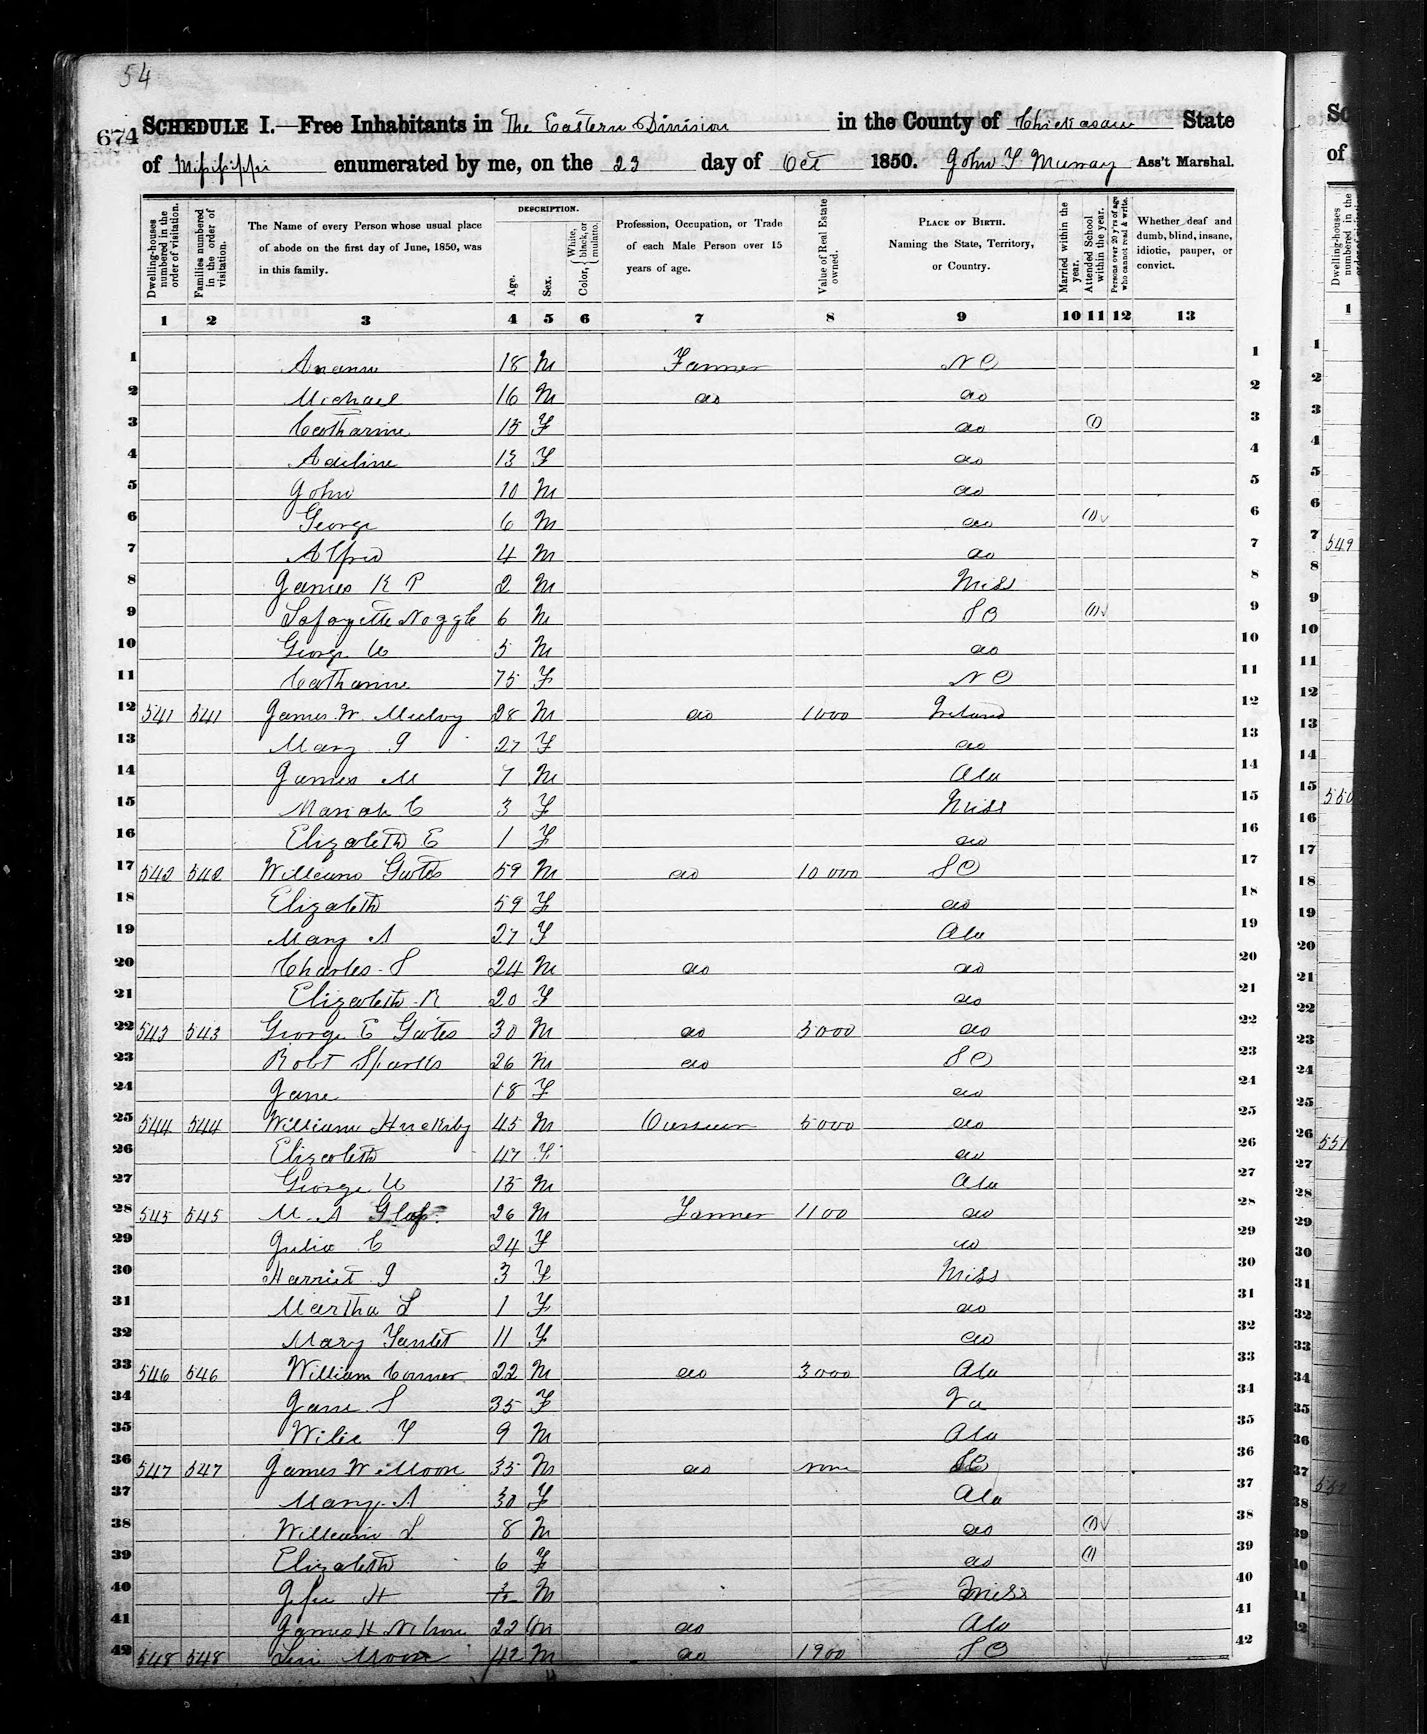 54
674
SCHEDULE I.—Free Inhabitants in The Eastern Division in the County of Chickasaw State
of Mississippi enumerated by me, on the 23 day of Oct 1850. John Murray Ass't Marshal.
Dwelling-houses numbered in the order of visitation.
Families numbered in the order of visitation.
The Name of every Person whose usual place of abode on the first day of June, 1850, was in this family.
DESCRIPTION.
Age.
Sex.
Color, { White, black, or mulatto.
Profession, Occupation, or Trade of each Male Person over 15 years of age.
Value of Real Estate owned.
PLACE OF BIRTH. Naming the State, Territory, or Country.
Married within the year.
Attended School within the year.
Persons over 20 y'rs of age who cannot read & write.
Whether deaf and dumb, blind, insane, idiotic, pauper, or convict.
1 2 3 4 5 6 7 8 9 10 11 12 13
1 18 M Farmer N C 1
2 Michael 16 M do do 2
3 Catharine 15 F do (1) 3
4 Adeline 13 F do 4
5 John 10 M do 5
6 George 6 M do (1) 6
7 Alfred 4 M do 7
8 James K P 2 M Miss 8
9 Lafayette Noggle 6 M S C (1) 9
10 George W 5 M do 10
11 Catharine 75 F N C 11
12 541 541 James W 28 M do 1000 Ireland 12
13 Mary J 27 F do 13
14 James M 7 M Ala 14
15 Mariah C 3 F Miss 15
16 Elizabeth E 1 F do 16
17 542 542 William Gates 59 M do 10 000 S C 17
18 Elizabeth 59 F do 18
19 Mary A 27 F Ala 19
20 Charles S 24 M do do 20
21 Elizabeth R 20 F do 21
22 543 543 George E Gates 30 M do 5000 do 22
23 Robt Sparks 26 M do S C 23
24 Jane 18 F do 24
25 544 544 William Huckeby 45 M Overseer 5000 do 25
26 Elizabeth 47 F do 26
27 George W 15 M Ala 27
28 545 545 M A Glass 26 M Farmer 1100 do 28
29 Julia C 24 F do 29
30 Harriet J 3 F Miss 30
31 Martha L 1 F do 31
32 Mary 11 F do 32
33 546 546 William Conner 22 M do 3000 Ala 33
34 Jane S 35 F Va 34
35 Wilie Y 9 M Ala 35
36 547 547 James W Moore 35 M do none S C 36
37 Mary A 30 F Ala 37
38 William L 8 M do (1) 38
39 Elizabeth 6 F do (1) 39
40 H M Miss 40
41 James H Nelson 22 M do Ala 41
42 548 548 Moore 42 M do 1900 S C 42
549
550
551